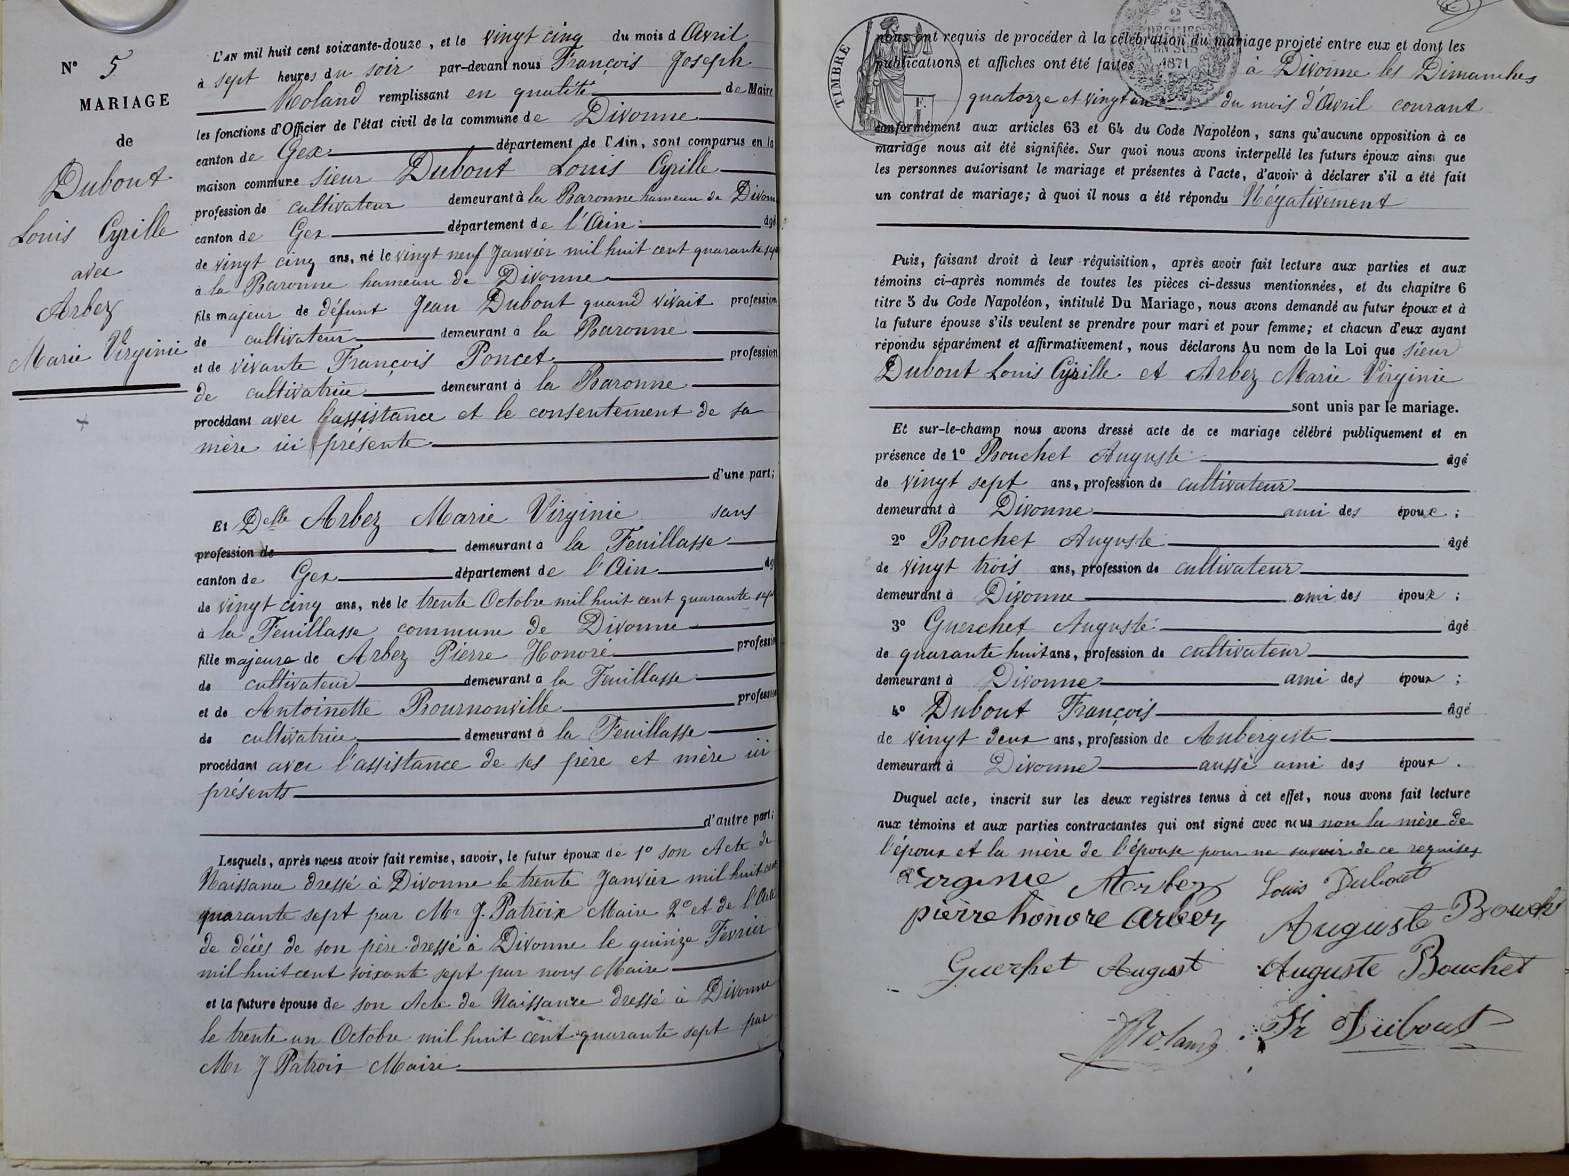 N° 5
MARIAGE
de
Dubout
Louis Cyrille
avec
Arbez
Marie Virginie
L'AN mil huit cent soixante-douze, et le vingt cinq du mois d'Avril
à sept heures du soir par-devant nous François Joseph
Roland remplissant en qualité de Maire
les fonctions d'Officier de l'état civil de la commune de Divonne
canton de Gex département de l'Ain, sont comparus en la
maison commune sieur Dubout Louis Cyrille
profession de cultivateur demeurant à la Baronne hameau de Divonne
canton de Gex département de l'Ain âgé
de vingt cinq ans, né le vingt neuf Janvier mil huit cent quarante sept
à la Baronne hameau de Divonne
fils majeur de défunt Jean Dubout quand vivait profession
de cultivateur demeurant à la Baronne
et de vivante François Poncet profession
de cultivatrice demeurant à la Baronne
procédant avec l'assistance et le consentement de sa
mère ici présente
d'une part;
Et Delle Arbez Marie Virginie sans
profession de demeurant à la Feuillasse
canton de Gex département de l'Ain âgé
de vingt cinq ans, née le trente Octobre mil huit cent quarante sept
à la Feuillasse commune de Divonne
fille majeure de Arbez Pierre Honore profession
de cultivateur demeurant à la Feuillasse
et de Antoinette Bournonville profession
de cultivatrice demeurant à la Feuillasse
procédant avec l'assistance de ses père et mère ici
présents
d'autre part;
Lesquels, après nous avoir fait remise, savoir, le futur époux de 1° son Acte de
Naissance dressé à Divonne le trente Janvier mil huit cent
quarante sept par Mr J. Patroix Maire 2° et de l'Acte
de décès de son père dressé à Divonne le quinze Fevrier
mil huit cent soixante sept par nous Maire
et la future épouse de son Acte de Naissance dressé à Divonne
le trente un Octobre mil huit cent quarante sept par
Mr J Patroix Maire
TIMBRE
2
1871
F.
nous ont requis de procéder à la célébration du mariage projeté entre eux et dont les
publications et affiches ont été faites à Divonne les Dimanches
quatorze et vingt un du mois d'Avril courant
conformément aux articles 63 et 64 du Code Napoléon, sans qu'aucune opposition à ce
mariage nous ait été signifiée. Sur quoi nous avons interpellé les futurs époux ainsi que
les personnes autorisant le mariage et présentes à l'acte, d'avoir à déclarer s'il a été fait
un contrat de mariage; à quoi il nous a été répondu Négativement
Puis, faisant droit à leur réquisition, après avoir fait lecture aux parties et aux
témoins ci-après nommés de toutes les pièces ci-dessus mentionnées, et du chapitre 6
titre 5 du Code Napoléon, intitulé Du Mariage, nous avons demandé au futur époux et à
la future épouse s'ils veulent se prendre pour mari et pour femme; et chacun d'eux ayant
répondu séparément et affirmativement, nous déclarons Au nom de la Loi que sieur
Dubout Louis Cyrille et Arbez Marie Virginie
sont unis par le mariage.
Et sur-le-champ nous avons dressé acte de ce mariage célébré publiquement et en
présence de 1° Bouchet Auguste âgé
de vingt sept ans, profession de cultivateur
demeurant à Divonne ami des époux;
2° Bouchet Auguste âgé
de vingt trois ans, profession de cultivateur
demeurant à Divonne ami des époux;
3° Guerchet Auguste âgé
de quarante huit ans, profession de cultivateur
demeurant à Divonne ami des époux;
4° Dubout François âgé
de vingt deux ans, profession de Aubergiste
demeurant à Divonne aussi ami des époux.
Duquel acte, inscrit sur les deux registres tenus à cet effet, nous avons fait lecture
aux témoins et aux parties contractantes qui ont signé avec nous non la mère de
l'époux et la mère de l'épouse pour ne savoir de ce requises
virginie Arbez Louis Dubout
pierre honore arbez Auguste Bouch
Guerchet August Auguste Bouchet
Roland Fr Dubout